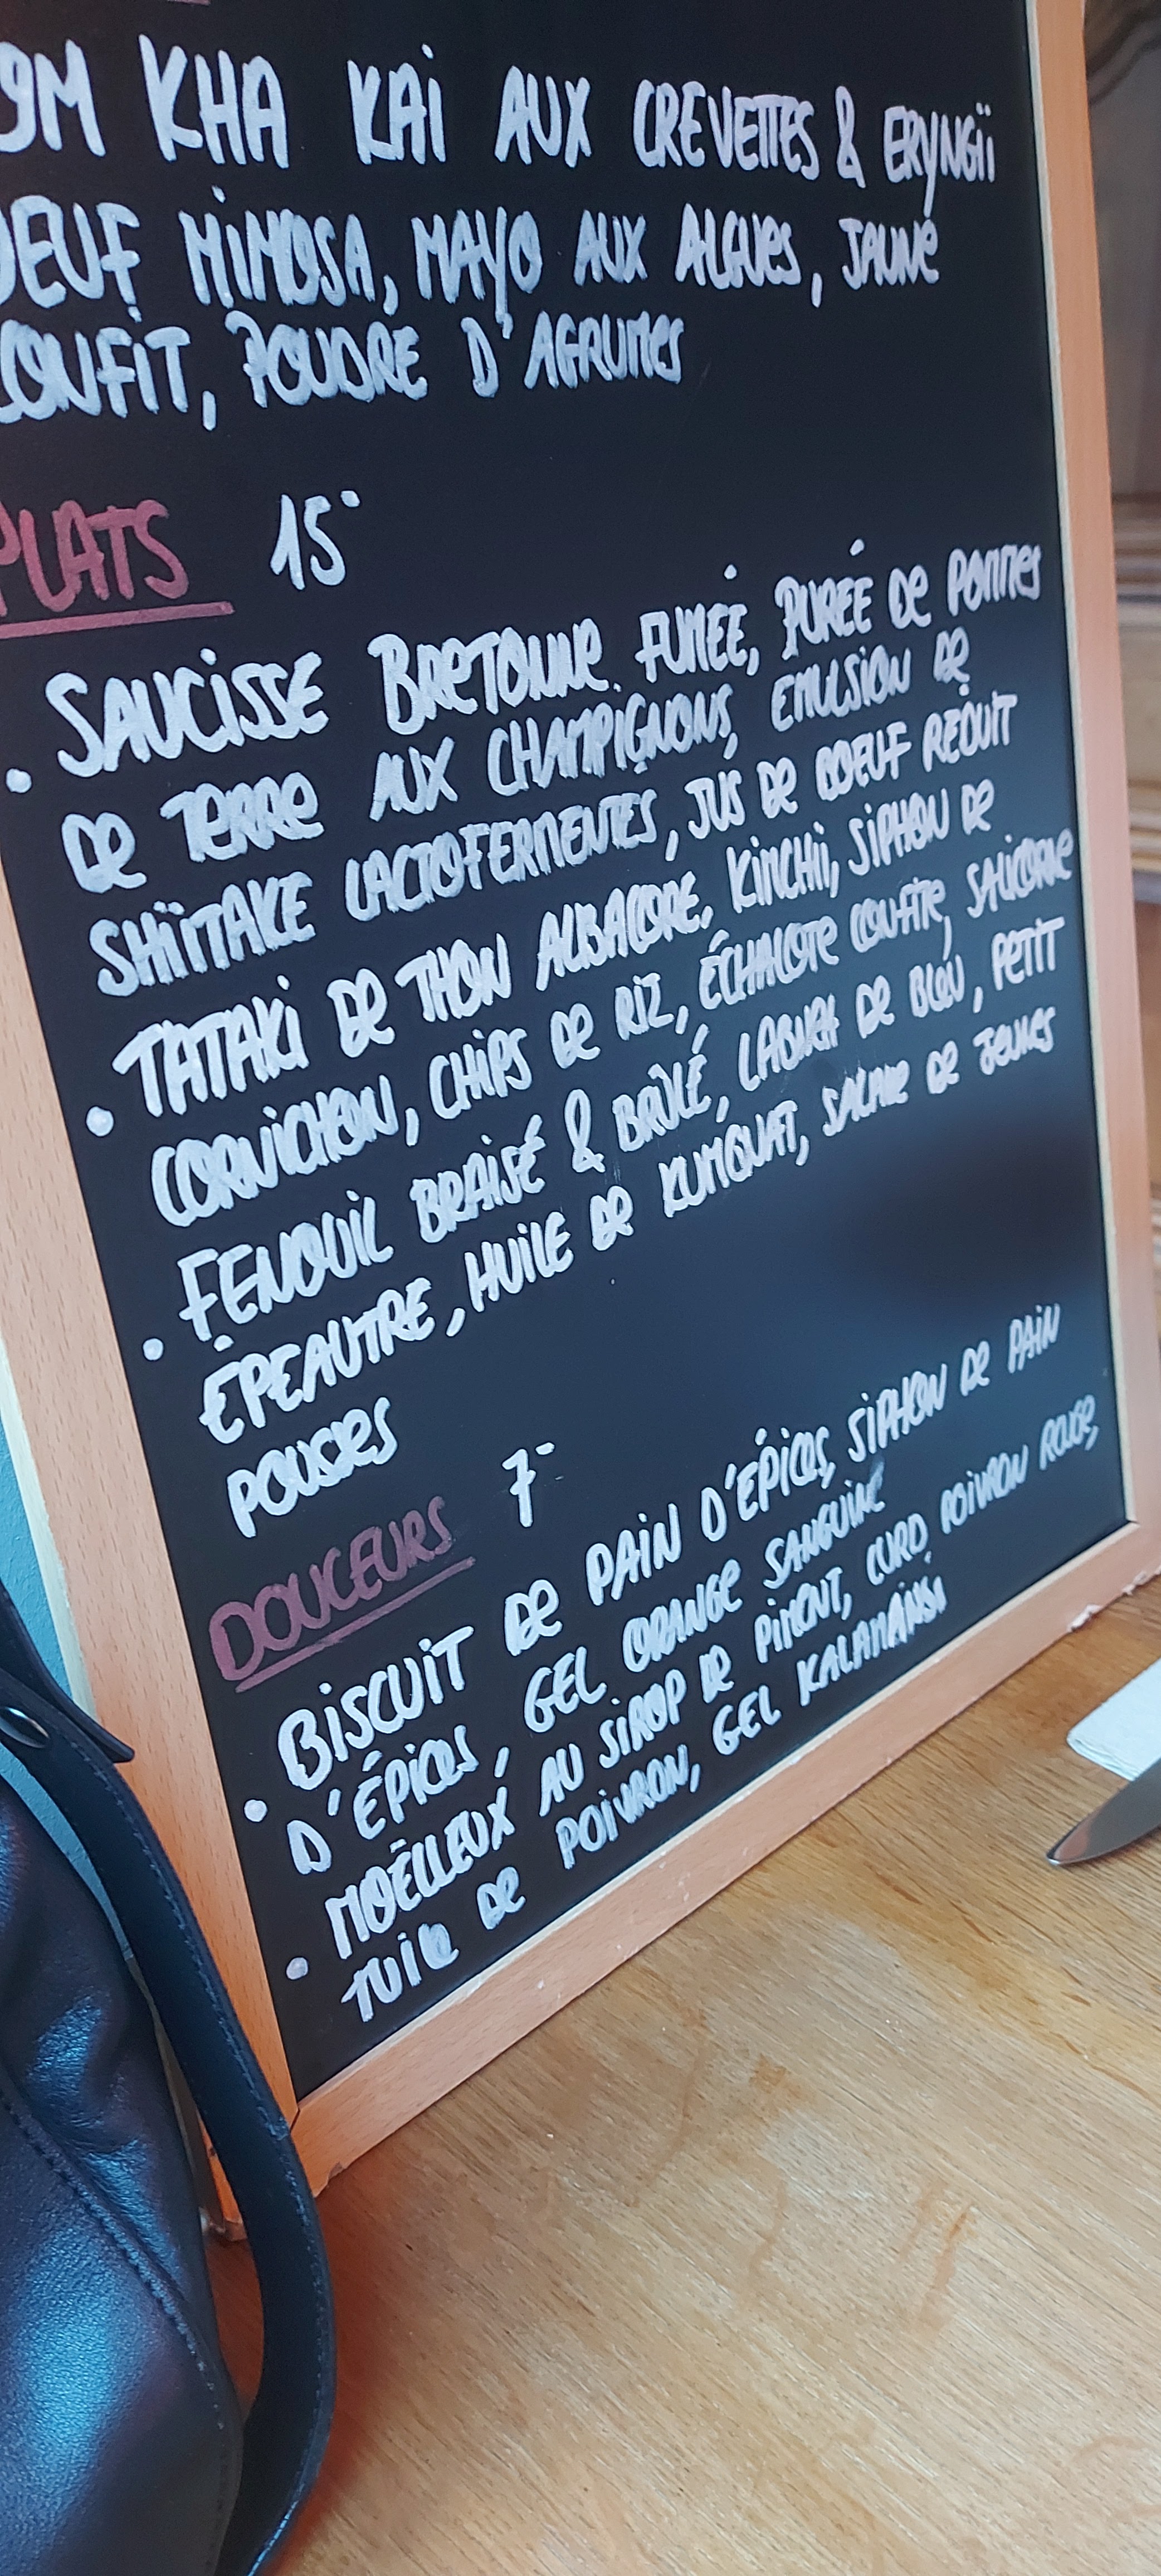 OM KHA KAI AUX CREVETTES & ERYNGII
OEUF MIMOSA, MAYO AUX ALGUES, JAUNE
CONFIT, POUDRE D'AGRUMES
PLATS 15-
• SAUCISSE BRETONNE FUMÉE, PURÉE DE POMMES
DE TERRE AUX CHAMPIGNONS, EMULSION DE
SHIITAKE LACTOFERMENTÉS, JUS DE BOEUF RÉDUIT
• TATAKI DE THON ALBACORE, KIMCHII, SIPHON DE
CORNICHON, CHIPS DE RIZ, ÉCHALOTE CONFITE, SALICORNE
• FENOUIL BRAISÉ & BRÛLÉ, LABNEH DE BLEU, PETIT
ÉPEAUTRE, HUILE DE KUMQUAT, SALADE DE JEUNES
POUSSES
DOUCEURS 7-
• BISCUIT DE PAIN D'ÉPICES, SIPHON DE PAIN
D'ÉPICES, GEL ORANGE SANGUINE
• MOËLLEUX AU SIROP DE PIMENT, CURD POIVRON ROUGE,
TUILE DE POIVRON, GEL KALAMANSI